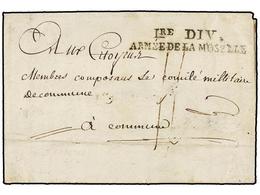 1RE DIV.
ARMÉE DE LA MOSELLE
Aux Citoyens
Membres composans le comité militaire
de commune
à commune